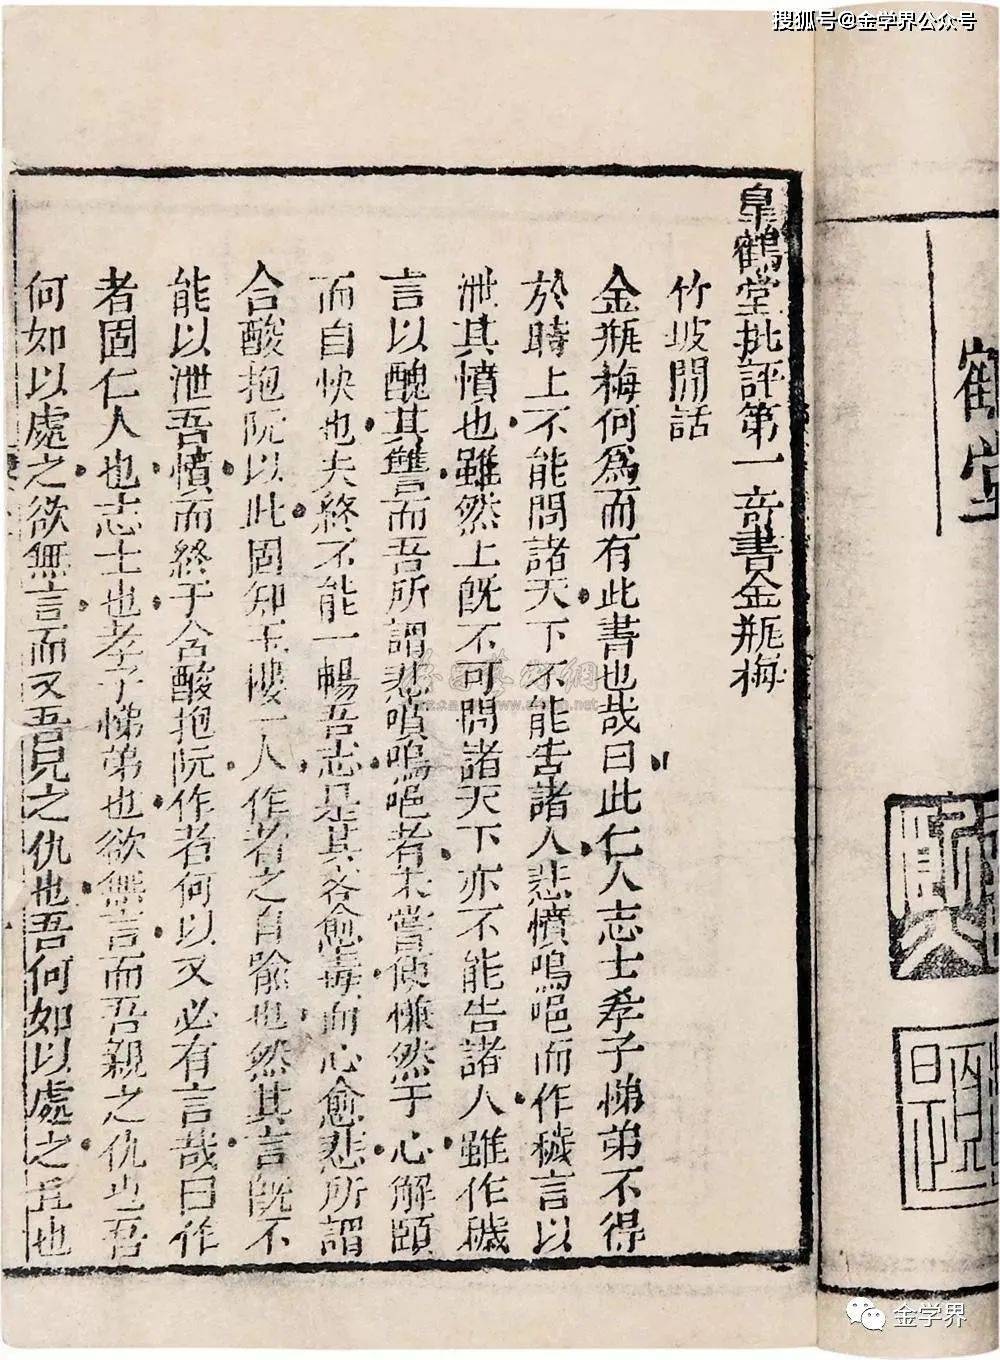 搜狐号@金学界公众号
鶴堂
皐鶴堂批評第一奇書金瓶梅
竹坡閒話
金瓶梅何爲而有此書也哉曰此仁人志士孝子悌弟不得
於時上不能問諸天下不能告諸人悲憤嗚唈而作穢言以
泄其憤也雖然上旣不可問諸天下亦不能告諸人雖作穢
言以醜其讐而吾所謂悲憤嗚唈者未嘗使慊然于心解頤
而自快也夫終不能一暢吾志是其愈毒而心愈悲所謂
含酸抱阮以此固知玉樓一人作者之自喻也然其言旣不
能以泄吾憤而終于含酸抱阮作者何以又必有言哉曰作
者固仁人也志士也孝子悌弟也欲無言而吾親之仇也吾
何如以處之欲無言而又吾兄之仇也吾何如以處之且也
金学界